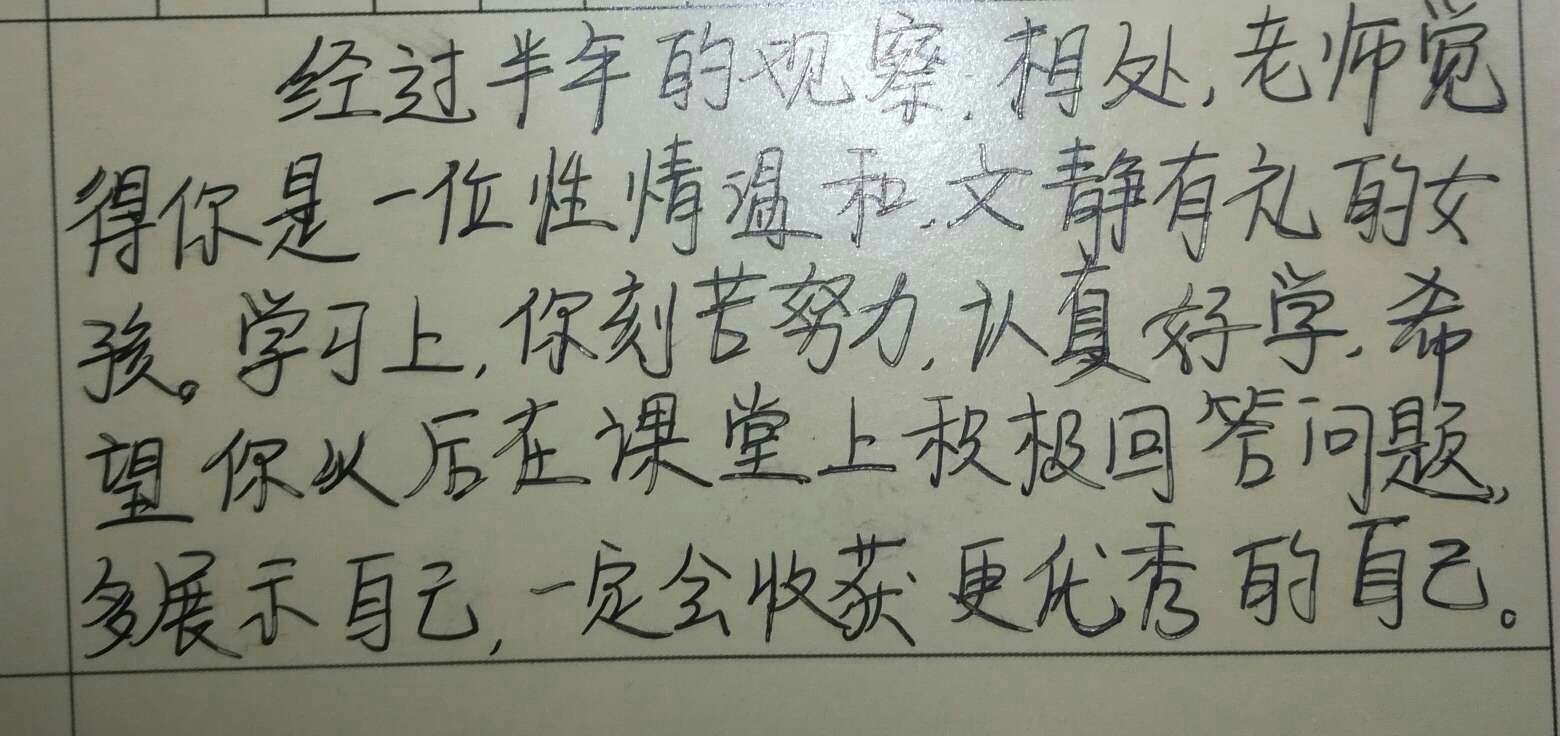 经过半年的观察.相处,老师觉
得你是一位性情温和.文静有礼的女
孩。学习上,你刻苦努力,认真好学.希
望你从后在课堂上积极回答问题,
多展示自己,一定会收获更优秀的自己。